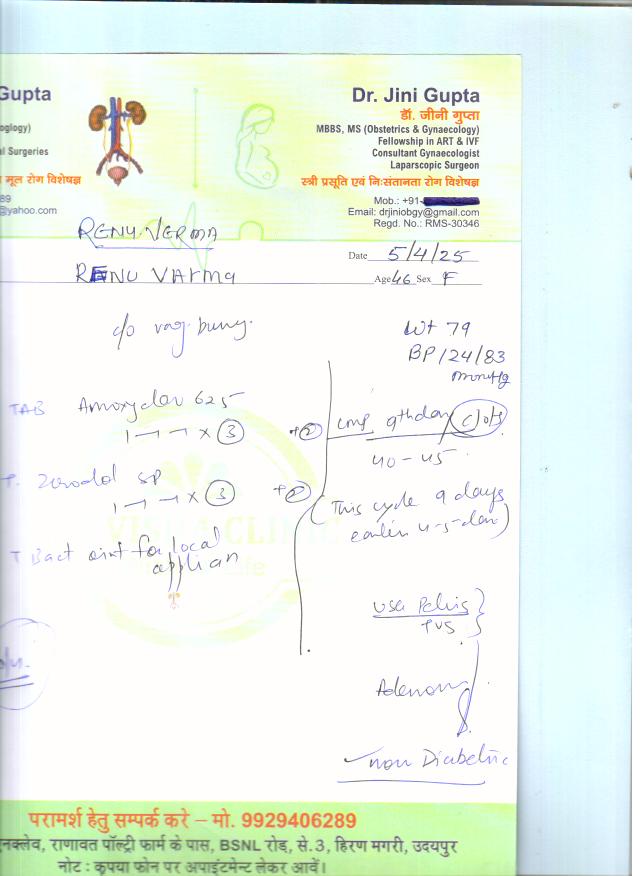 Gupta
Dr. Jini Gupta
डॉ. जीनी गुप्ता
ology)
MBBS, MS (Obstetrics & Gynaecology)
Fellowship in ART & IVF
al Surgeries
Consultant Gynaecologist
Laparscopic Surgeon
मूल रोग विशेषज्ञ
स्त्री प्रसूति एवं निःसंतानता रोग विशेषज्ञ
89
Mob.: +91-
@yahoo.com
Email: drjiniobgy@gmail.com
Regd. No.: RMS-30346
RENU VERMA
Date 5/4/25
RENU VARMA
Age 46 Sex F
c/o vag.
Wt 79
BP 124/83
mmHg
TAB Amoxyclav 625
1 - 1 - 1 x 3
LMP 9th day clots
40-45
T. Zerodol SP
1 - 1 - 1 x 3
(This cycle 9 days
earlier 4-5-day)
T Bact oint for local
applican
USG Pelvis
TVS
Adenomy
non Diabetic
परामर्श हेतु सम्पर्क करे – मो. 9929406289
नक्लेव, राणावत पॉल्ट्री फार्म के पास, BSNL रोड, से.3, हिरण मगरी, उदयपुर
नोट : कृपया फोन पर अपाइंटमेन्ट लेकर आवें।